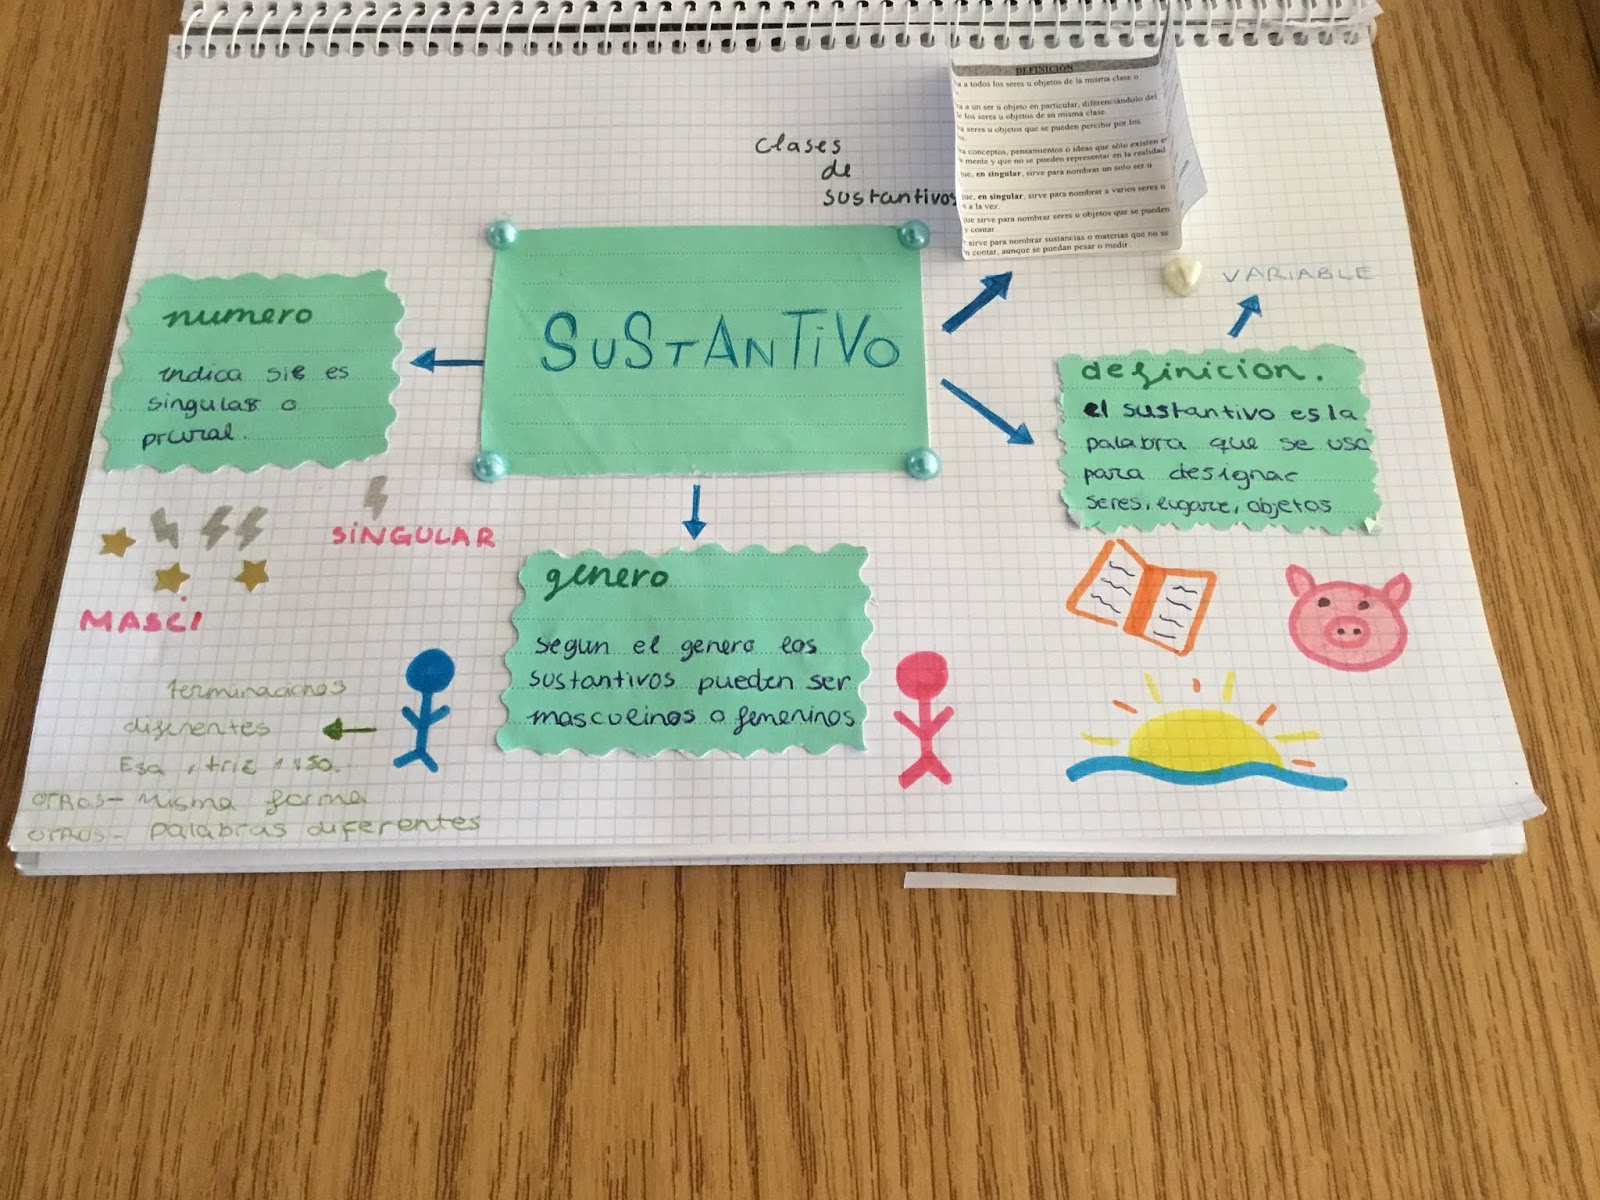 DEFINICIÓN
a a todos los seres u objetos de la misma clase o
a a un ser u objeto en particular, diferenciándolo del
de los seres u objetos de su misma clase.
a seres u objetos que se pueden percibir por los
a conceptos, pensamientos o ideas que sólo existen e
mente y que no se pueden representar en la realidad
ue, en singular, sirve para nombrar un solo ser u
ue, en singular, sirve para nombrar a varios seres u
s a la vez.
que sirve para nombrar seres u objetos que se pueden
y contar.
sirve para nombrar sustancias o materias que no se
n contar, aunque se puedan pesar o medir.
Clases
de
sustantivos
VARIABLE
SUSTANTIVO
numero
indica sie es
singular o
prural.
definicion.
el sustantivo es la
palabra que se usa
para designar
seres, lugare, objetos
SINGULAR
MASCI
genero
segun el genero los
sustantivos pueden ser
masculinos o femeninos
terminaciones
diferentes
Esa, triz, isa.
OTROS- Misma forma
OTROS- palabras diferentes